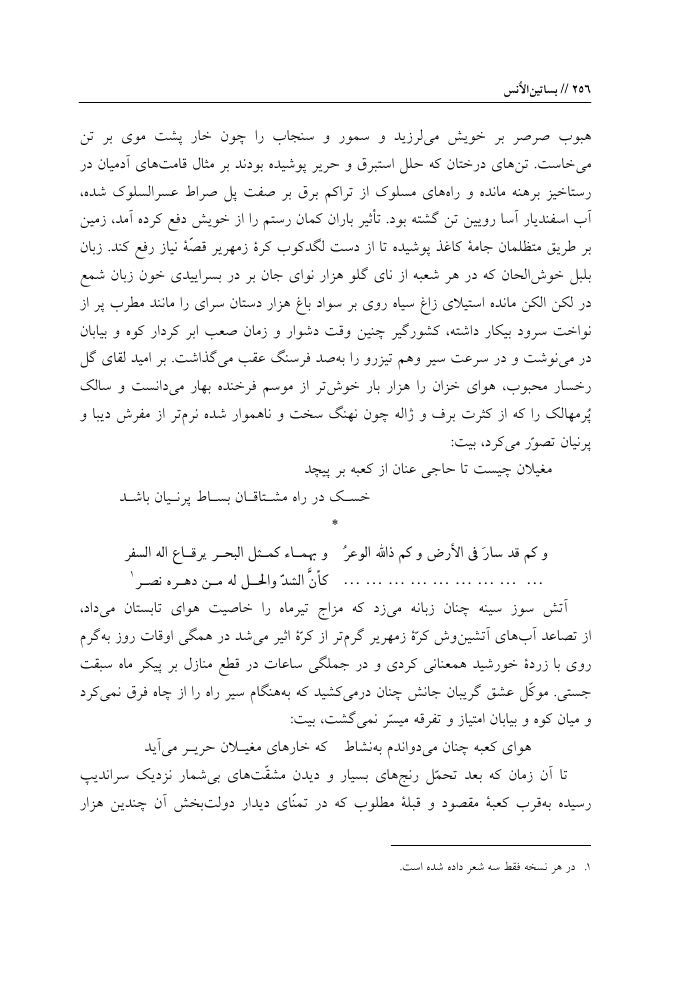 ٢٥٦ // بساتین‌الأنس
هبوب صرصر بر خویش می‌لرزید و سمور و سنجاب را چون خار پشت موی بر تن
می‌خاست. تن‌های درختان که حلل استبرق و حریر پوشیده بودند بر مثال قامت‌های آدمیان در
رستاخیز برهنه مانده و راه‌های مسلوک از تراکم برق بر صفت پل صراط عسرالسلوک شده،
آب اسفندیار آسا رویین تن گشته بود. تأثیر باران کمان رستم را از خویش دفع کرده آمد، زمین
بر طریق متظلمان جامۀ کاغذ پوشیده تا از دست لگدکوب کرۀ زمهریر قصّۀ نیاز رفع کند. زبان
بلبل خوش‌الحان که در هر شعبه از نای گلو هزار نوای جان بر در بسراییدی خون زبان شمع
در لکن الکن مانده استیلای زاغ سیاه روی بر سواد باغ هزار دستان سرای را مانند مطرب پر از
نواخت سرود بیکار داشته، کشورگیر چنین وقت دشوار و زمان صعب ابر کردار کوه و بیابان
در می‌نوشت و در سرعت سیر وهم تیزرو را به‌صد فرسنگ عقب می‌گذاشت. بر امید لقای گل
رخسار محبوب، هوای خزان را هزار بار خوش‌تر از موسم فرخنده بهار می‌دانست و سالک
پُرمهالک را که از کثرت برف و ژاله چون نهنگ سخت و ناهموار شده نرم‌تر از مفرش دیبا و
پرنیان تصوّر می‌کرد، بیت:
مغیلان چیست تا حاجی عنان از کعبه بر پیچد
خسک در راه مشتاقان بساط پرنیان باشد
*
و کم قد سارَ فی الأرض و کم ذالله الوعرُ    و بهماء کمثل البحر یرقاع اله السفر
... ... ... ... ... ... ... ... ...    کأنَّ الشدّ والحل له من دهره نصر١
آتش سوز سینه چنان زبانه می‌زد که مزاج تیرماه را خاصیت هوای تابستان می‌داد،
از تصاعد آب‌های آتشین‌وش کرّۀ زمهریر گرم‌تر از کرّۀ اثیر می‌شد در همگی اوقات روز به‌گرم
روی با زردۀ خورشید همعنانی کردی و در جملگی ساعات در قطع منازل بر پیکر ماه سبقت
جستی. موکّل عشق گریبان جانش چنان درمی‌کشید که به‌هنگام سیر راه را از چاه فرق نمی‌کرد
و میان کوه و بیابان امتیاز و تفرقه میسّر نمی‌گشت، بیت:
هوای کعبه چنان می‌دواندم به‌نشاط    که خارهای مغیلان حریر می‌آید
تا آن زمان که بعد تحمّل رنج‌های بسیار و دیدن مشقّت‌های بی‌شمار نزدیک سراندیپ
رسیده به‌قرب کعبۀ مقصود و قبلۀ مطلوب که در تمنّای دیدار دولت‌بخش آن چندین هزار
١. در هر نسخه فقط سه شعر داده شده است.